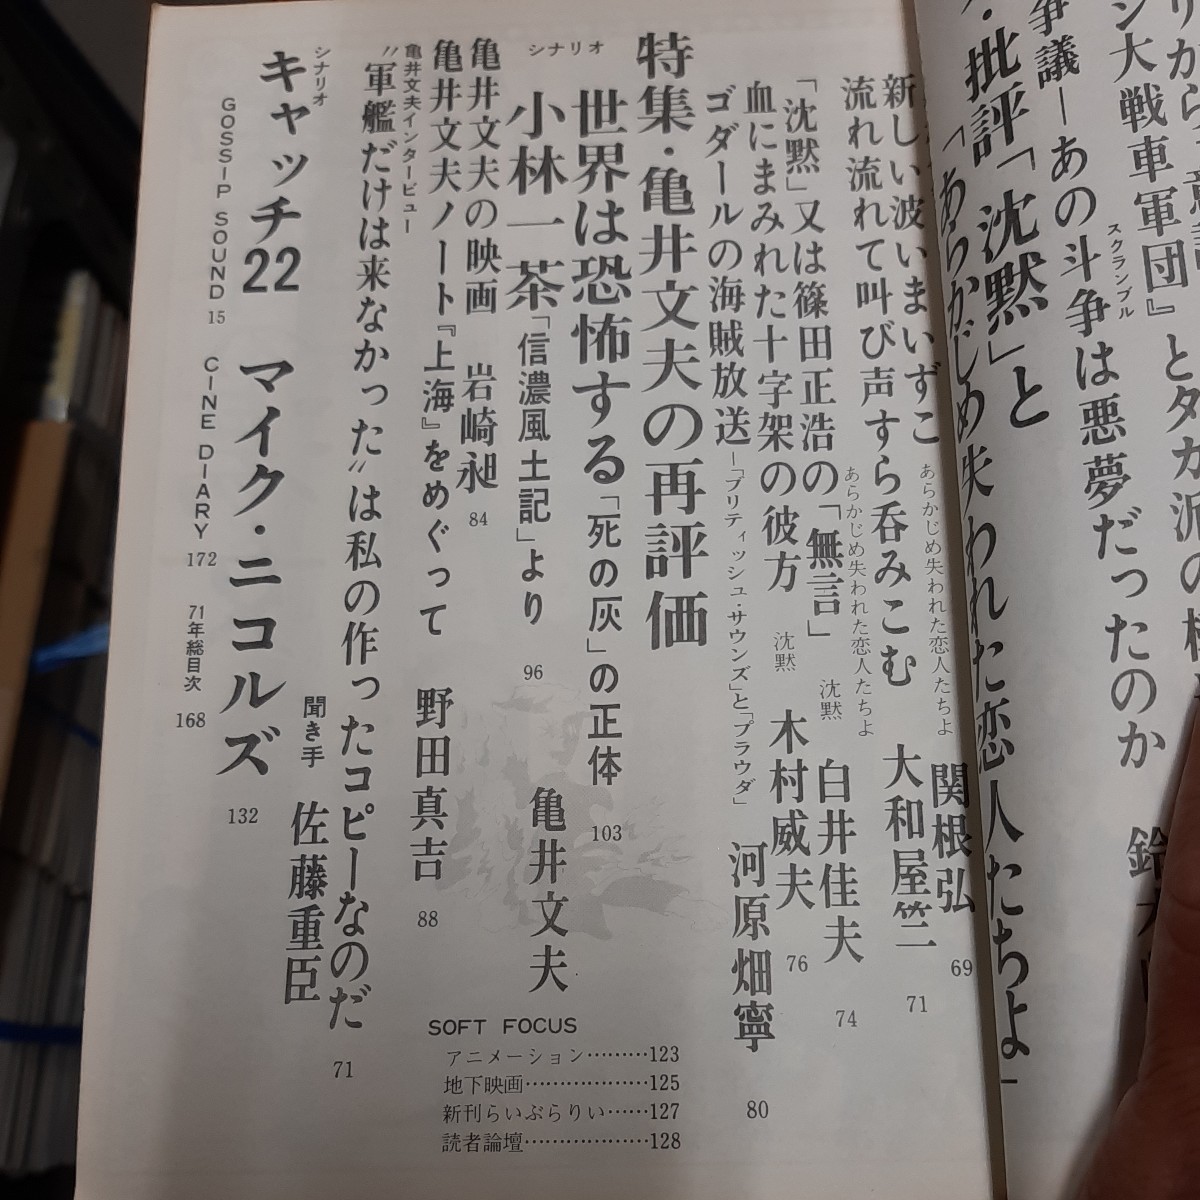 争議―あの斗争は悪夢だったのか
スクランブル
批評「沈黙」と
「あらかじめ失われた恋人たちよ」
新しい波いまいずこ
あらかじめ失われた恋人たちよ
関根弘
69
流れ流れて叫び声すら呑みこむ
あらかじめ失われた恋人たちよ
大和屋竺
71
「沈黙」又は篠田正浩の「無言」
沈黙
白井佳夫
74
血にまみれた十字架の彼方
沈黙
木村威夫
76
ゴダールの海賊放送
―「ブリティッシュ・サウンズ」と「プラウダ」
河原畑寧
80
特集・亀井文夫の再評価
世界は恐怖する「死の灰」の正体
103
シナリオ
小林一茶「信濃風土記」より
96
亀井文夫
亀井文夫の映画
岩崎昶
84
亀井文夫ノート『上海』をめぐって
野田真吉
88
亀井文夫インタービュー
"軍艦だけは来なかった"は私の作ったコピーなのだ
聞き手
佐藤重臣
71
シナリオ
キャッチ22
マイク・ニコルズ
132
GOSSIP SOUND 15
CINE DIARY 172
71年総目次 168
SOFT FOCUS
アニメーション………123
地下映画………………125
新刊らいぶらりい……127
読者論壇………………128